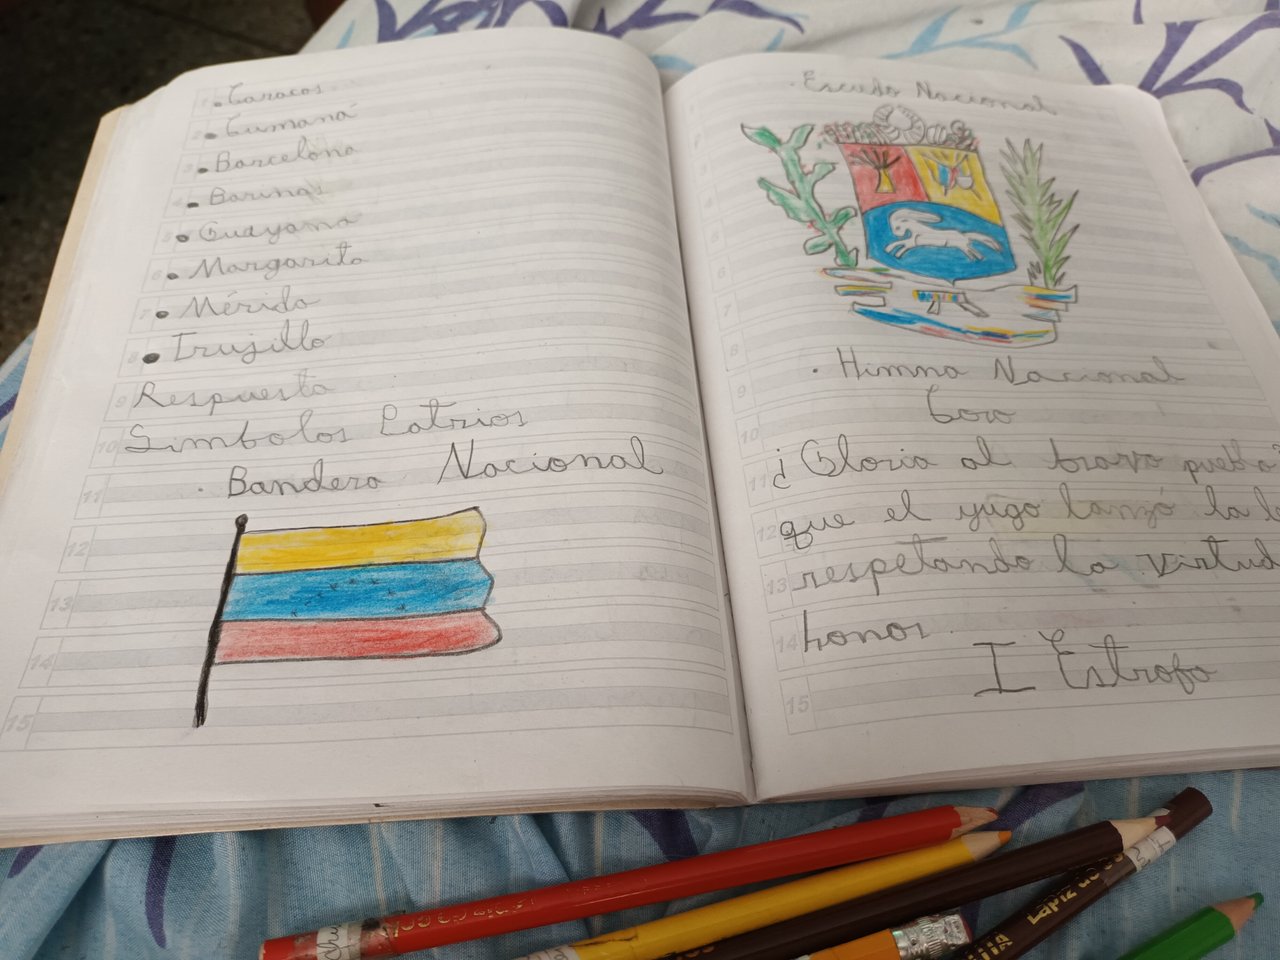 1 • Caracas
2 • Cumaná
3 • Barcelona
4 • Barinas
5 • Guayana
6 • Margarita
7 • Mérida
8 • Trujillo
9 Respuesta
10 Simbolos Patrios
11 • Bandera Nacional
12
13
14
15
• Escudo Nacional
1
2
3
4
5
6
7
8 • Himno Nacional
9 Coro
10
11 ¿Gloria al bravo pueblo
12 que el yugo lanzó la
13 respetando la virtud
14 honor.
I Estrofa
15
Lapiz de